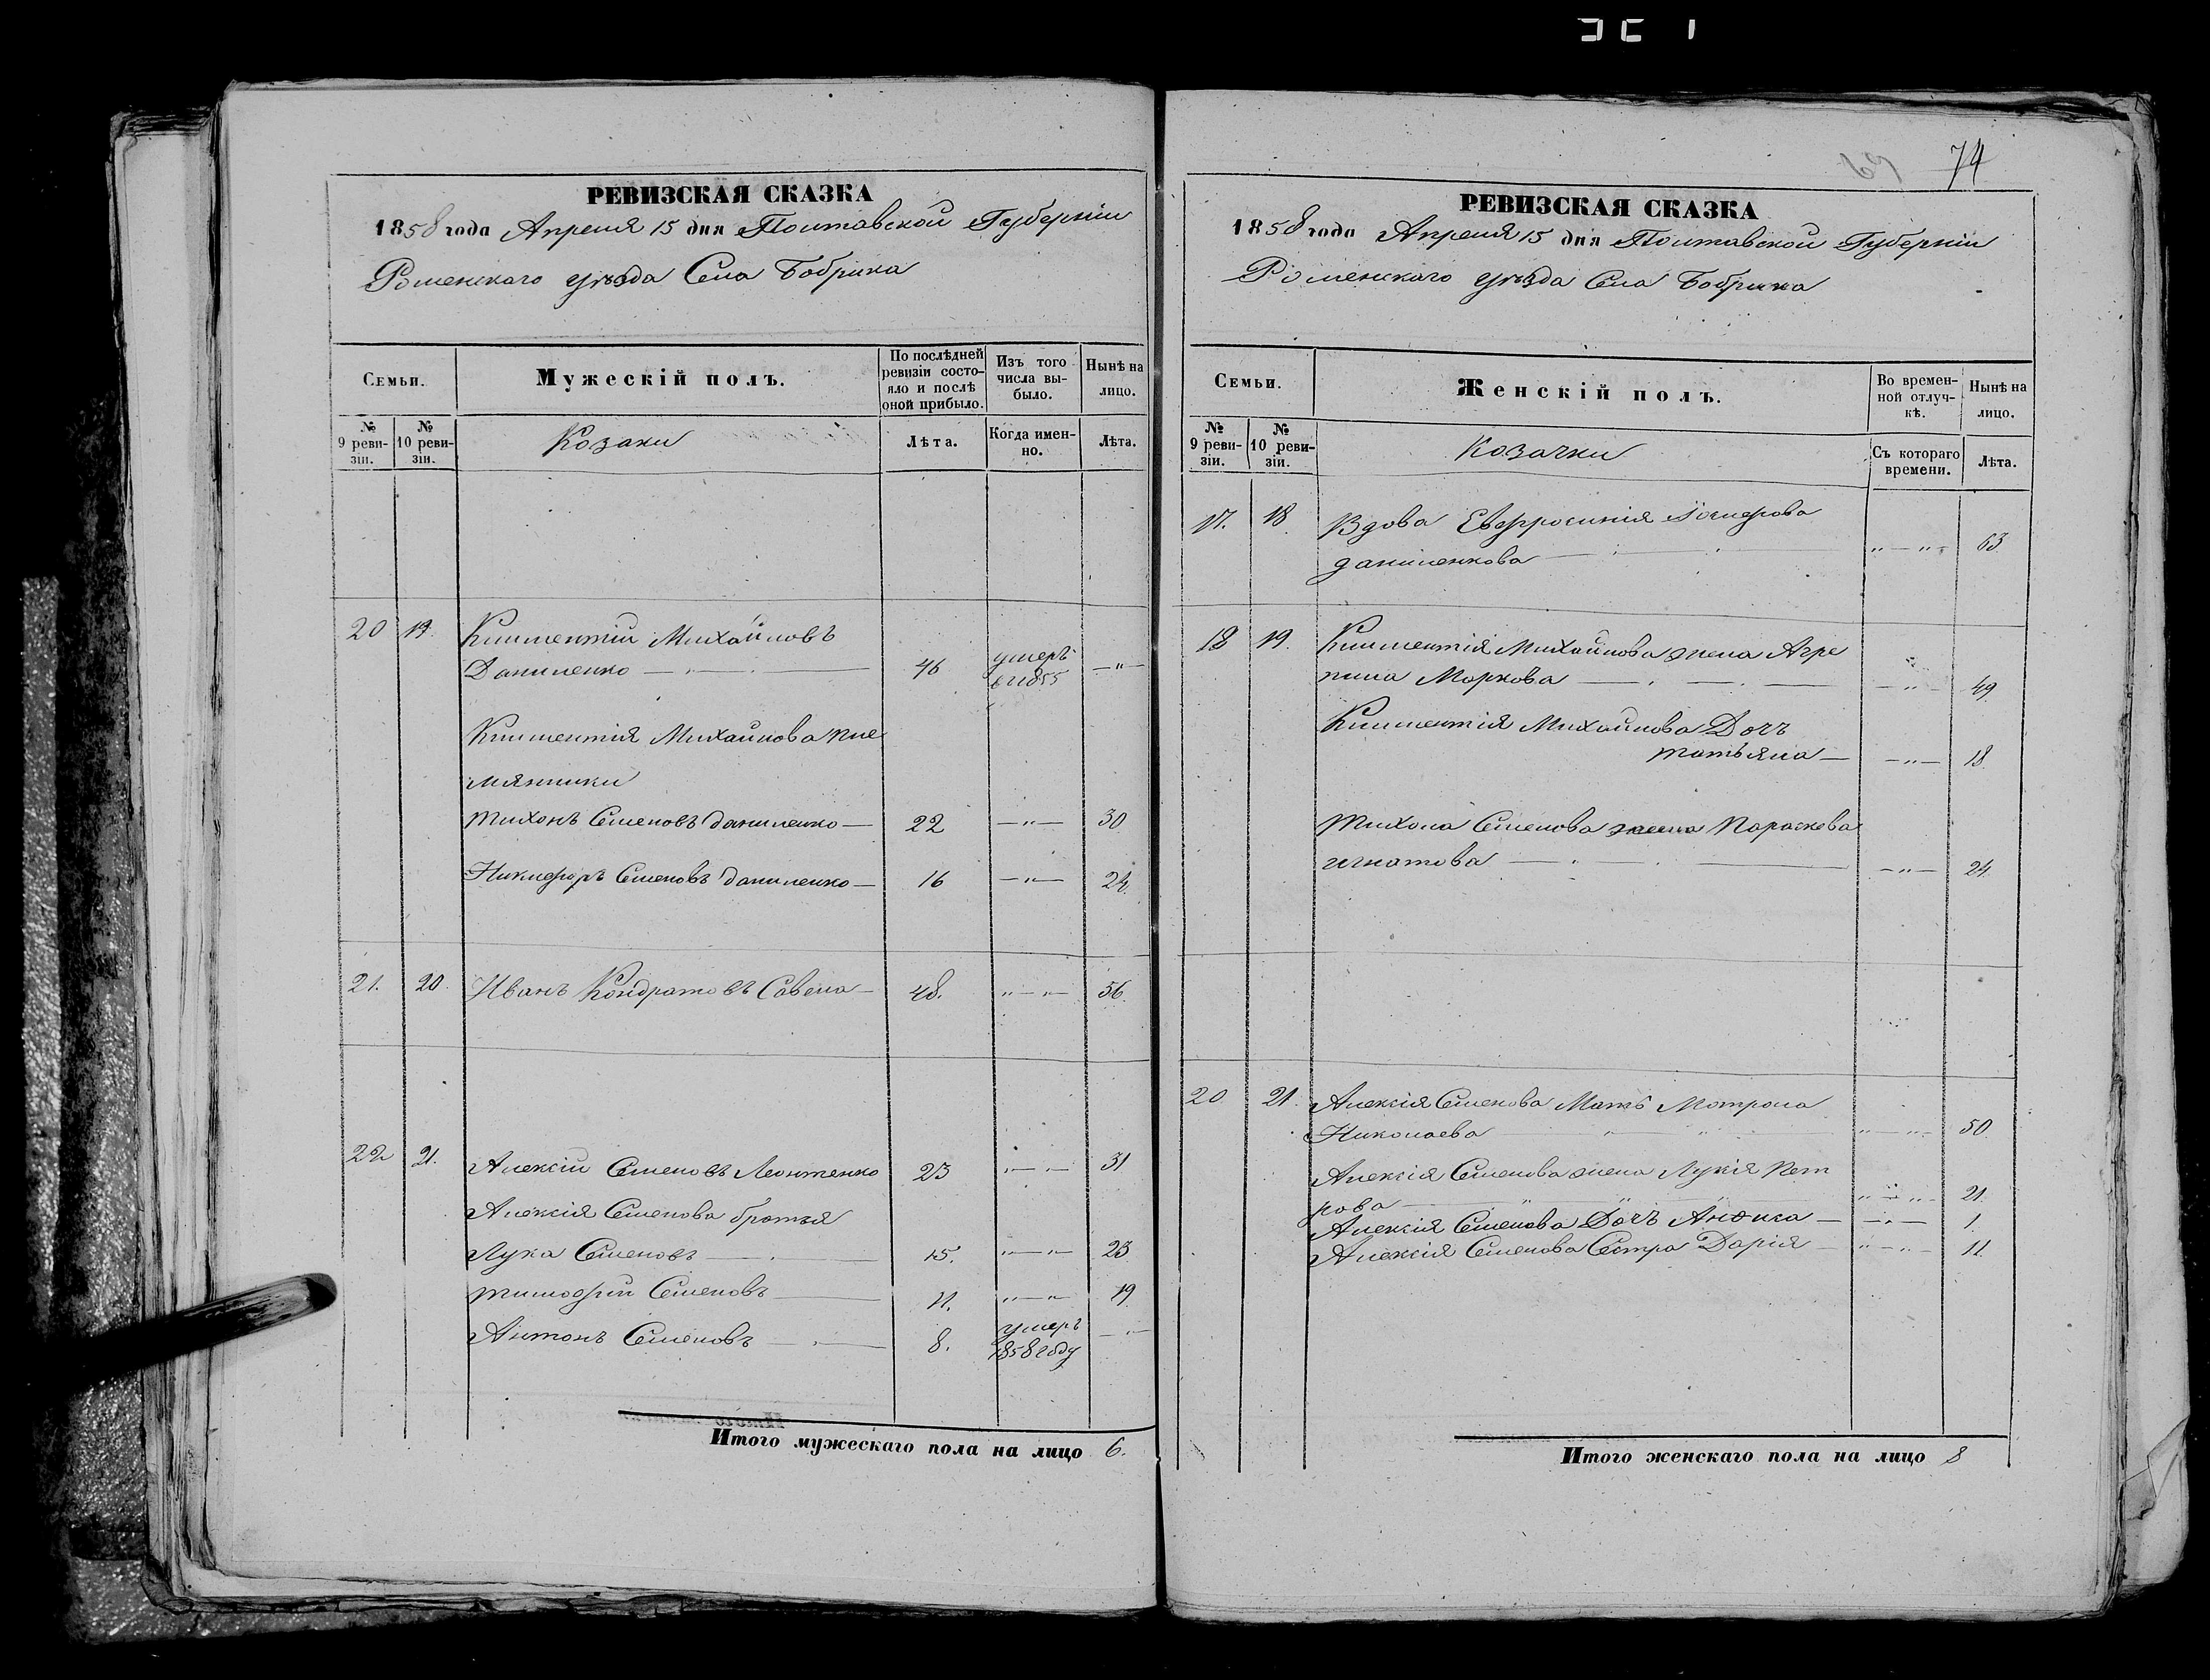 74
69
РЕВИЗСКАЯ СКАЗКА
1858 года Апреля 15 дня Полтавской Губерніи
Роменскаго уѣзда Села Бобрика
Семьи.
Мужескій полъ.
По послѣдней ревизіи состояло и послѣ оной прибыло.
Изъ того числа выбыло.
Нынѣ на лицо.
№ 9 ревизіи.
№ 10 ревизіи.
Козаки
Лѣта.
Когда именно.
Лѣта.
20 19. Климентій Михайловъ
Даниленко — 46 умеръ 1855 — " —
Климентія Михайлова пле
мянники
Тихонъ Семеновъ Даниленко — 22 — " — 30
Никифоръ Семеновъ Даниленко — 16 — " — 24.
21. 20. Иванъ Кондратовъ Савела — 48. " — " — 56.
22 21. Алексій Семеновъ Леонтенко 23 " — " — 31
Алексія Семенова братья
Лука Семеновъ — 15. " — " — 23
Тимофій Семеновъ — 11. " — " 19
Антонъ Семеновъ — 8. умеръ 1858 году — " —
Итого мужескаго пола на лицо 6.
РЕВИЗСКАЯ СКАЗКА
1858 года Апреля 15 дня Полтавской Губерніи
Роменскаго уѣзда Села Бобрика
Семьи.
Женскій полъ.
Во временной отлучкѣ.
Нынѣ на лицо.
№ 9 ревизіи.
№ 10 ревизіи.
Козачки
Съ котораго времени.
Лѣта.
17. 18. Вдова Евфросинія
даниленкова — " — " — 63
18 19. Климентія Михайлова жена Агре
пина Маркова — — " — 49
Климентія Михайлова Дочь
татьяна — — " — 18
Тихона Семенова жена Параскева
игнатова — — " — 24.
20 21. Алексія Семенова Мать Мотрона
Николаева — " — " — 50
Алексія Семенова жена Лукія Пет
рова — " — " — 21
Алексія Семенова Дочь — — " — 1.
Алексія Семенова Сестра Дарія — " — " — 11.
Итого женскаго пола на лицо 8